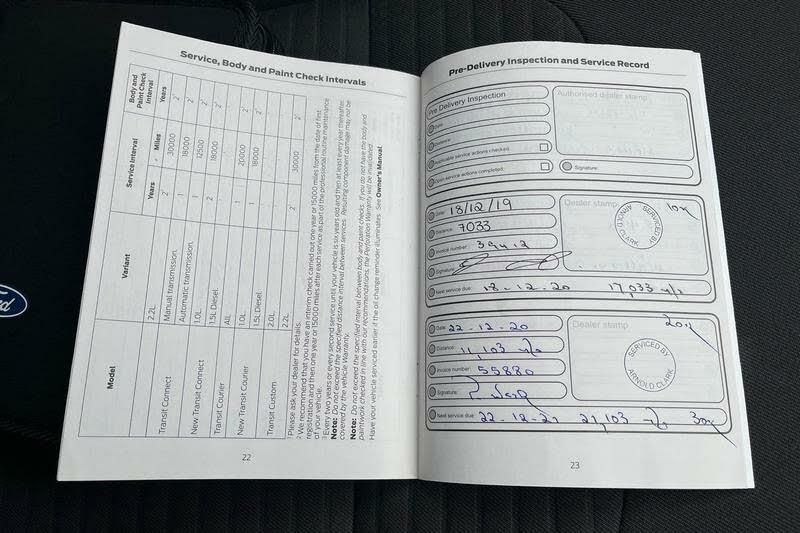 Service, Body and Paint Check Intervals
Model
Variant
Service Interval
Body and Paint Check Interval
Years
Miles
Years
Transit Connect
2.2L
Manual transmission.
2
30000
2
Automatic transmission.
1
18000
2
New Transit Connect
1.0L
1
12500
2
1.5L Diesel.
2
18000
2
Transit Courier
All.
New Transit Courier
1.0L
1
20000
2
1.5L Diesel
1
18000
2
Transit Custom
2.0L
2.2L
2
30000
2
1 Please ask your dealer for details.
2 We recommend that you have an interim check carried out one year or 15000 miles from the date of first
registration and then one year or 15000 miles after each service as part of the professional routine maintenance
of your vehicle.
3 Every two years or every second service until your vehicle is six years old and then at least every year thereafter.
Note: Do not exceed the specified distance interval between services. Resulting component damage may not be
covered by the vehicle Warranty.
Note: Do not exceed the specified interval between body and paint checks. If you do not have the body and
paintwork checked in line with our recommendations, the Perforation Warranty will be invalidated.
Have your vehicle serviced earlier if the oil change reminder illuminates. See Owner's Manual.
22
Pre-Delivery Inspection and Service Record
Pre Delivery Inspection
Authorised dealer stamp
Date:
Distance:
Applicable service actions checked:
Open service actions completed:
Signature:
Date: 18/12/19
Dealer stamp
SERVICED BY
ARNOLD CLARK
Distance: 7033
Invoice number:
Signature:
Next service due: 18-12-20 17,033
Date: 22-12-20
Dealer stamp
SERVICED BY
ARNOLD CLARK
Distance: 11,103
Invoice number: 55880
Signature:
Next service due: 22-12-21 21,103
23